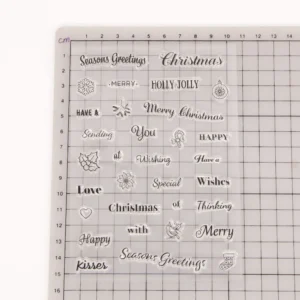 cm 1 2 3 4 5 6 7 8 9 10 11 12 13 14
1 Seasons Greetings Christmas
2
3 MERRY HOLLY JOLLY
4
5 HAVE A Merry Christmas
6 Sending You HAPPY
7
8 at Wishing Have a
9 Special Wishes
10 Love
11 Christmas of Thinking
12
13 Happy with Merry
14 Seasons Greetings
15 Kisses
16